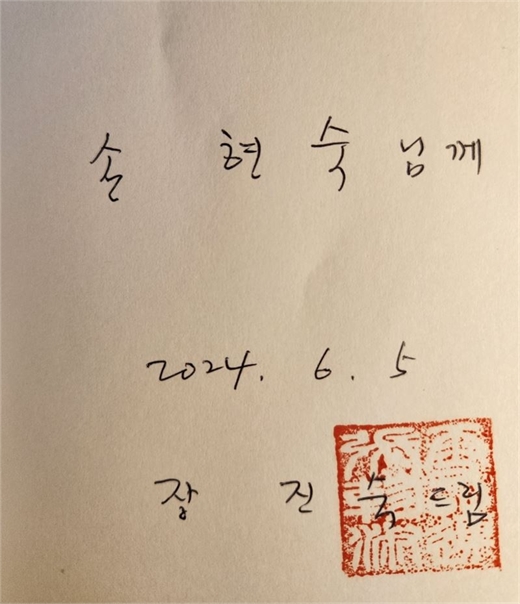 손 현숙 님께
2024. 6. 5
장 진 숙 드림